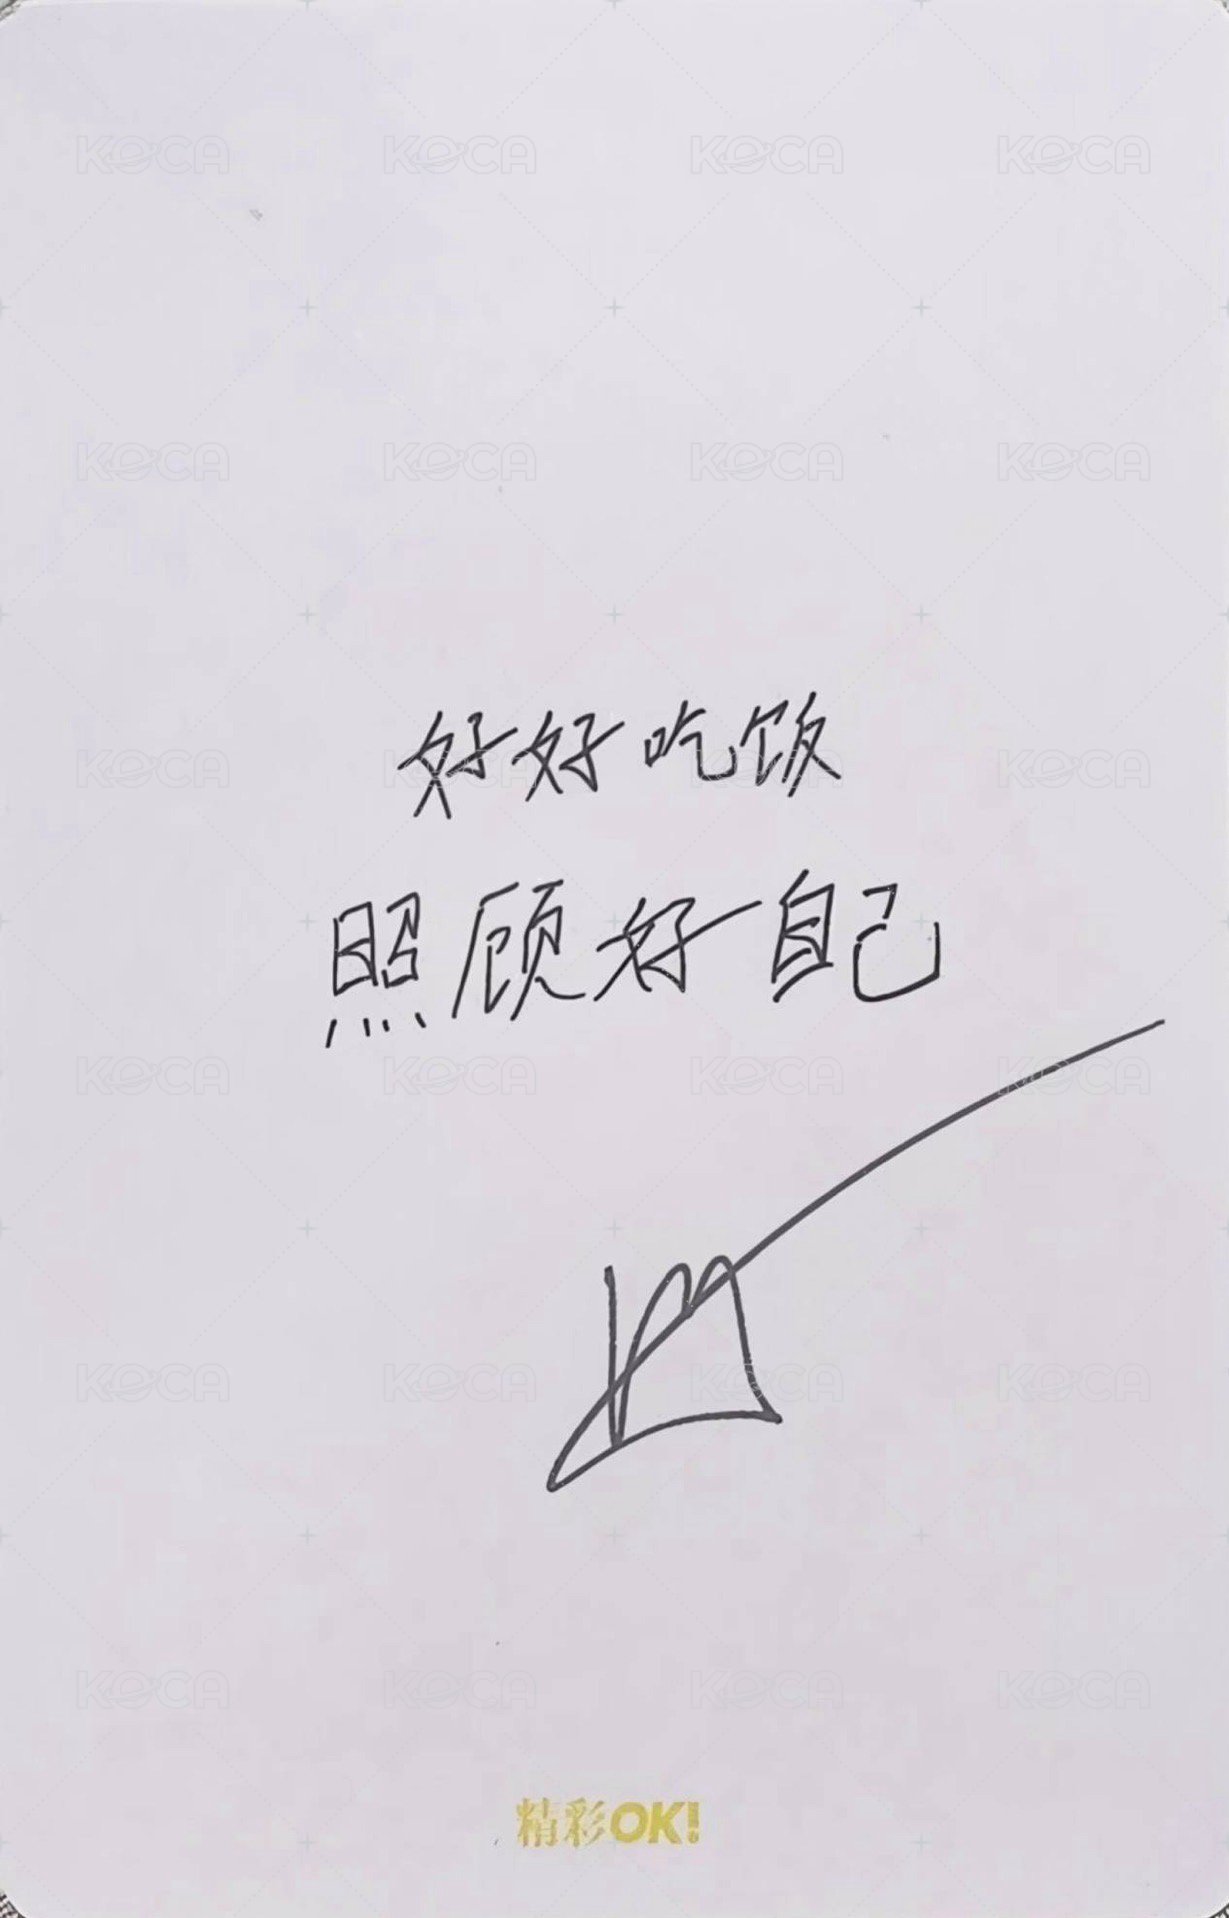 KOCA KOCA KOCA KOCA
KOCA KOCA KOCA KOCA
好好吃饭
KOCA KOCA KOCA KOCA
照顾好自己
KOCA KOCA KOCA KOCA
KOCA KOCA KOCA KOCA
KOCA KOCA KOCA KOCA
精彩OK!